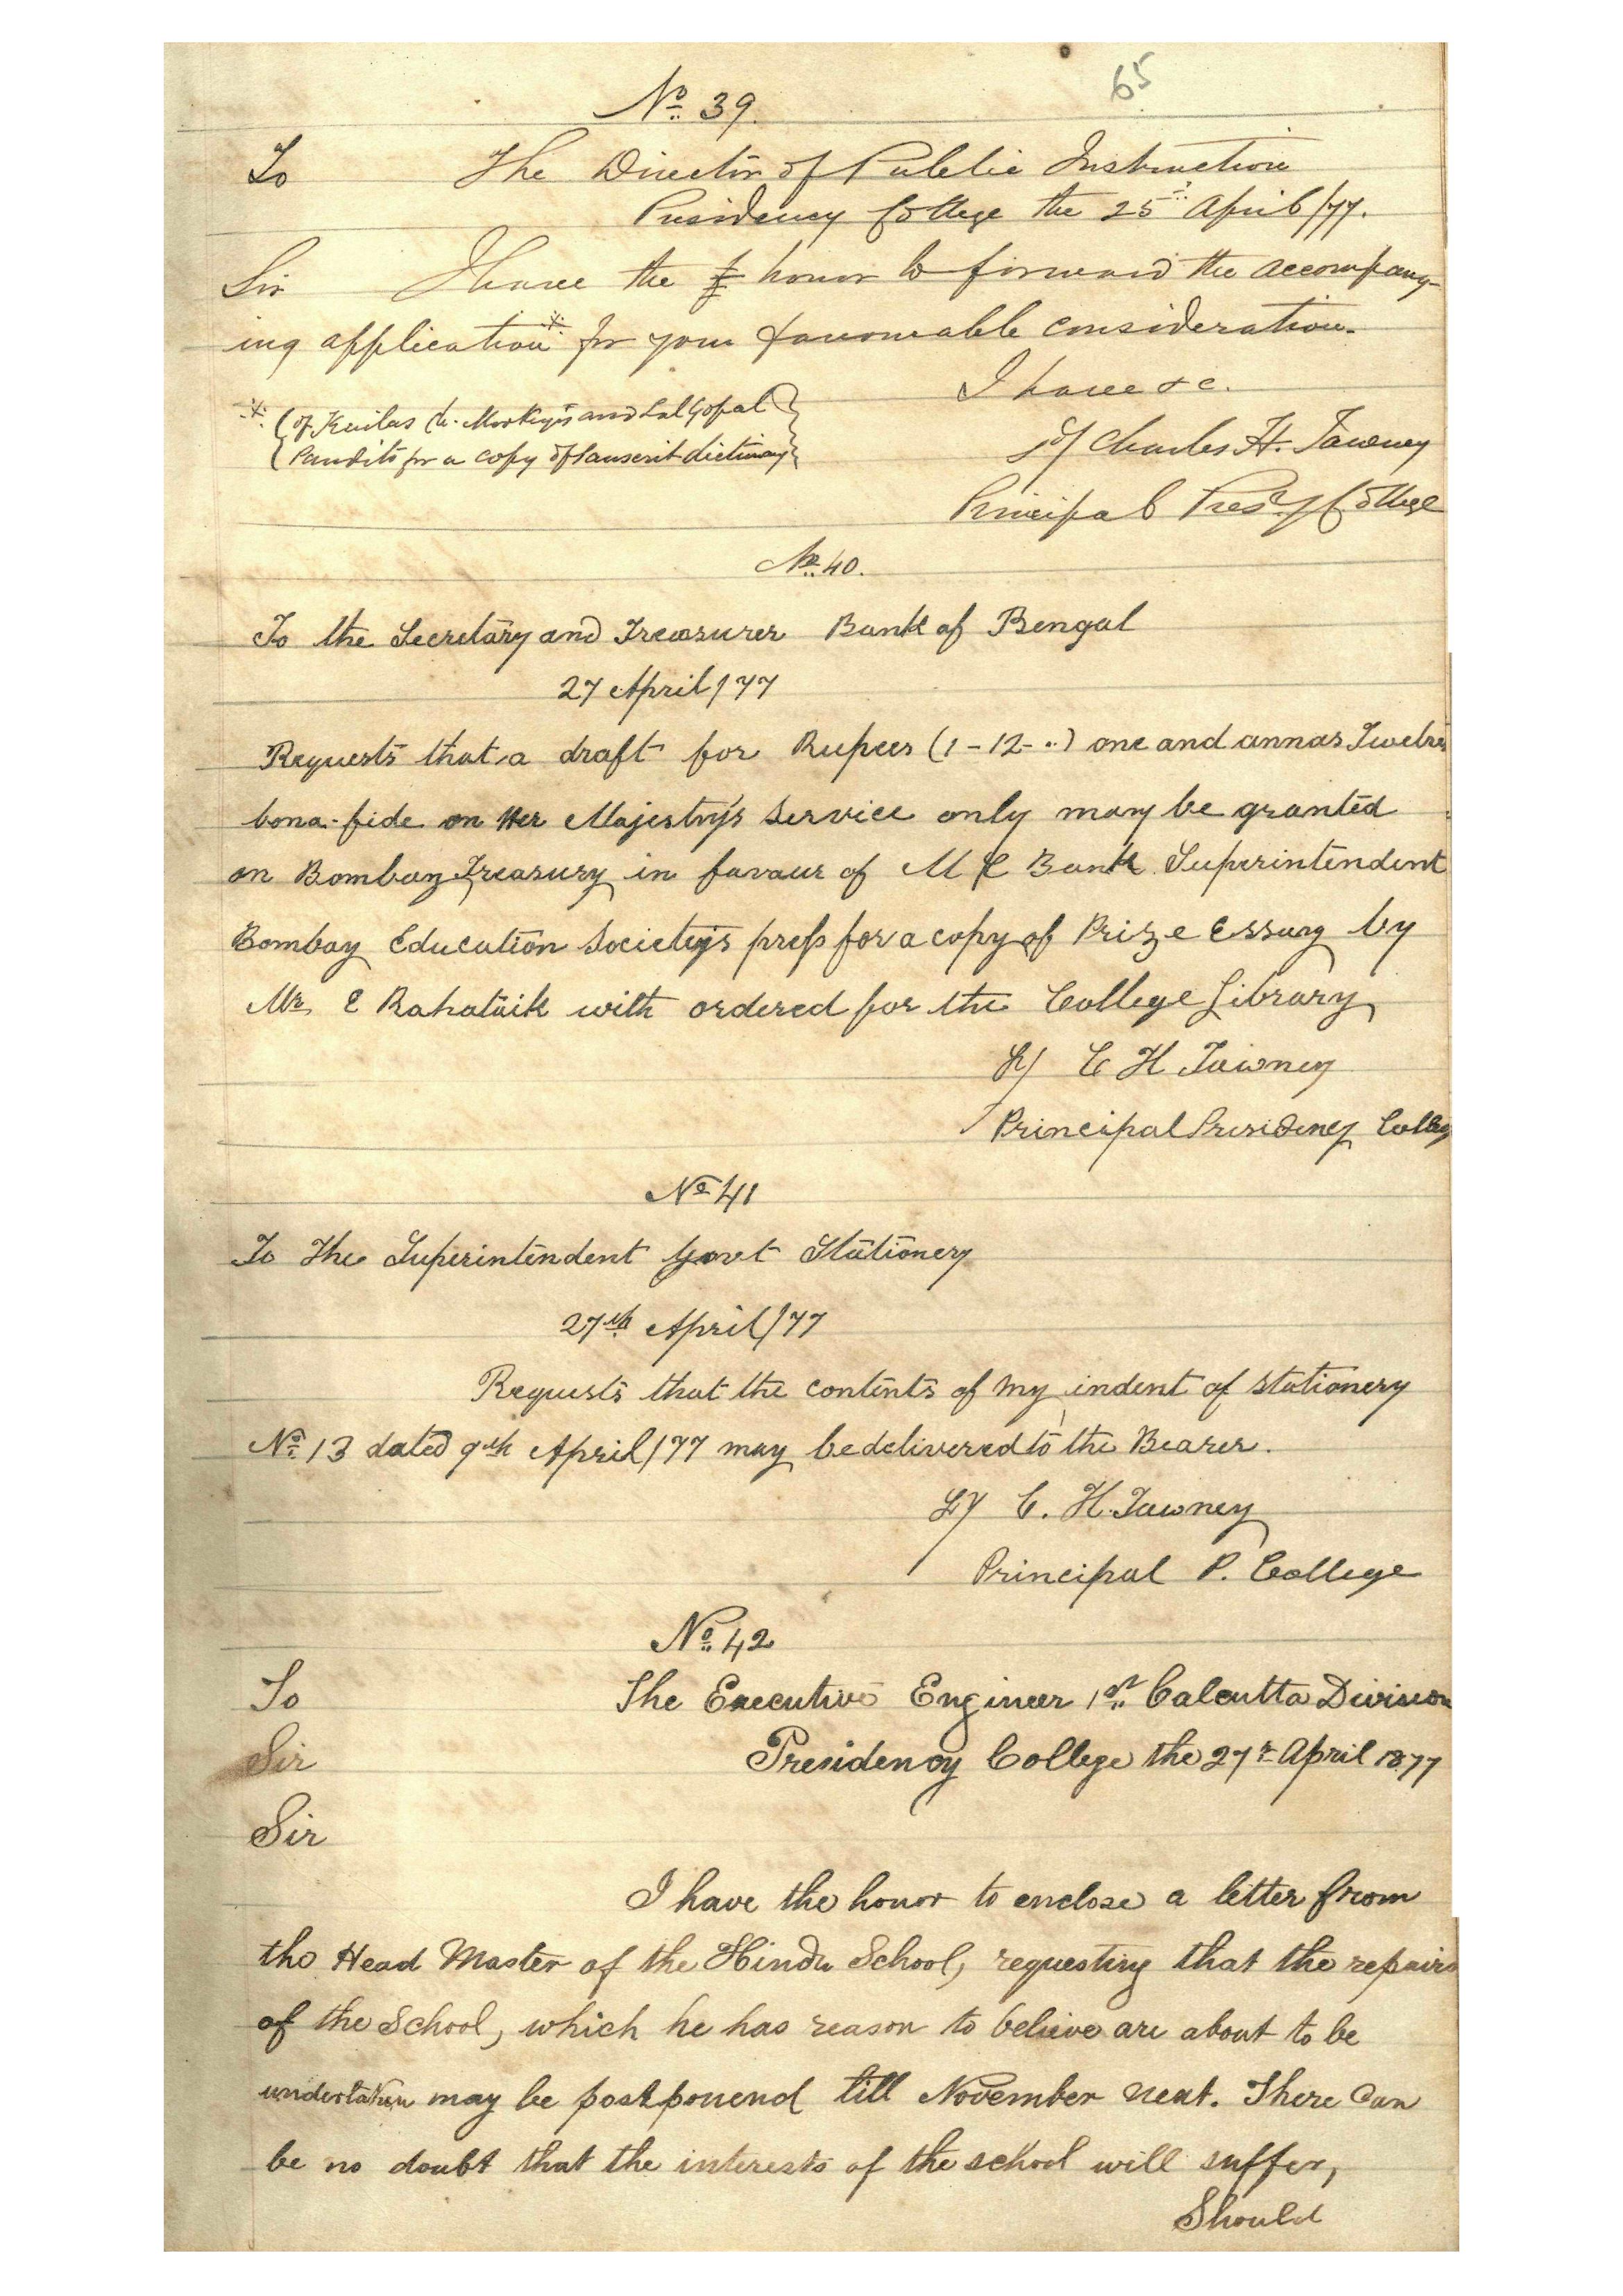 65
No. 39.
To The Director of Public Instruction
Presidency College the 25th April/77.
Sir I have the honor to forward the accompany-
ing application * for your favourable consideration.
I have &c.
* (of Kailas Ch. Mookerji and Lal Gopal
Pandits for a copy of Sanscrit dictionary)
Sd/ Charles H. Tawney
Principal Presy College
No. 40.
To the Secretary and Treasurer Bank of Bengal
27 April/77
Requests that a draft for Rupees (1-12-..) one and annas Twelve
bona-fide on Her Majesty's Service only may be granted
on Bombay Treasury in favour of M C Bank Superintendent
Bombay Education Society's press for a copy of Prize Essay by
Mr. E with ordered for the College Library
Sd/ C H Tawney
Principal Presidency College
No 41
To The Superintendent Govt Stationery
27th April/77
Requests that the contents of my indent of stationery
No. 13 dated 9th April/77 may be delivered to the Bearer.
Sd/ C. H. Tawney
Principal P. College
No. 42
To The Executive Engineer 1st Calcutta Division
Sir Presidency College the 27th April 1877
Sir
I have the honor to enclose a letter from
the Head Master of the Hindu School, requesting that the repairs
of the School, which he has reason to believe are about to be
undertaken may be postponend till November next. There can
be no doubt that the interests of the school will suffer,
Should